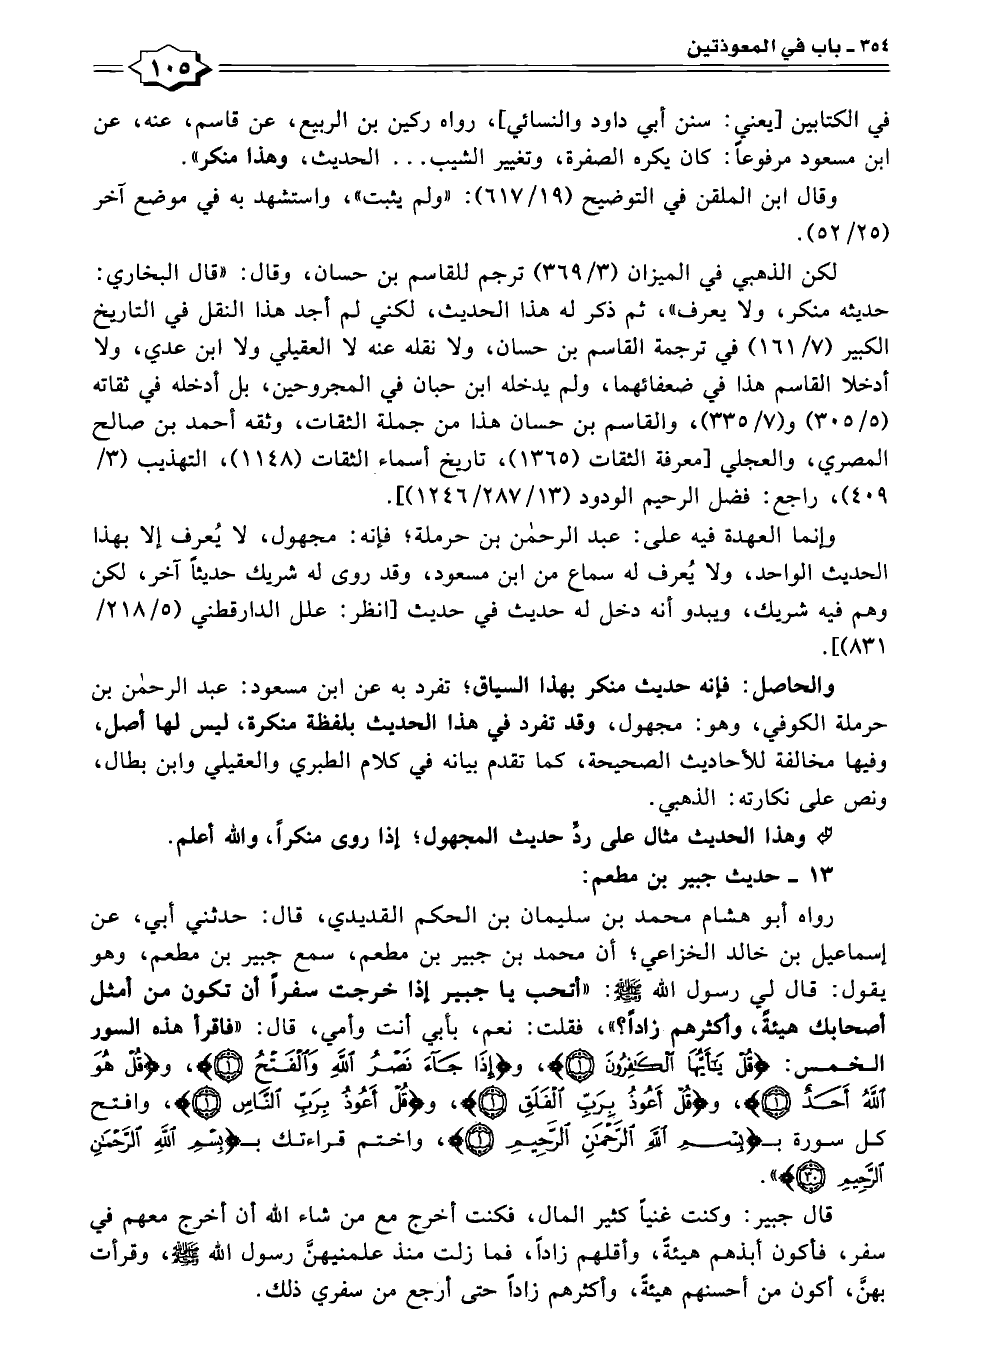 ٣٥٤ - باب في المعوذتين
١٠٥
في الكتابين [يعني: سنن أبي داود والنسائي]، رواه ركين بن الربيع، عن قاسم، عنه، عن
ابن مسعود مرفوعاً: كان يكره الصفرة، وتغيير الشيب... الحديث، وهذا منكر».
وقال ابن الملقن في التوضيح (٦١٧/١٩): «ولم يثبت»، واستشهد به في موضع آخر
(٥٢/٢٥).
لكن الذهبي في الميزان (٣٦٩/٣) ترجم للقاسم بن حسان، وقال: «قال البخاري:
حديثه منكر، ولا يعرف»، ثم ذكر له هذا الحديث، لكني لم أجد هذا النقل في التاريخ
الكبير (١٦١/٧) في ترجمة القاسم بن حسان، ولا نقله عنه لا العقيلي ولا ابن عدي، ولا
أدخلا القاسم هذا في ضعفائهما، ولم يدخله ابن حبان في المجروحين، بل أدخله في ثقاته
(٣٠٥/٥) و(٣٣٥/٧)، والقاسم بن حسان هذا من جملة الثقات، وثقه أحمد بن صالح
المصري، والعجلي [معرفة الثقات (١٣٦٥)، تاريخ أسماء الثقات (١١٤٨)، التهذيب (٣/
٤٠٩)، راجع: فضل الرحيم الودود (١٢٤٦/٢٨٧/١٣)].
وإنما العهدة فيه على: عبد الرحمٰن بن حرملة؛ فإنه: مجهول، لا يُعرف إلا بهذا
الحديث الواحد، ولا يُعرف له سماع من ابن مسعود، وقد روى له شريك حديثاً آخر، لكن
وهم فيه شريك، ويبدو أنه دخل له حديث في حديث [انظر: علل الدارقطني (٢١٨/٥/
٨٣١)].
والحاصل: فإنه حديث منكر بهذا السياق؛ تفرد به عن ابن مسعود: عبد الرحمٰن بن
حرملة الكوفي، وهو: مجهول، وقد تفرد في هذا الحديث بلفظة منكرة، ليس لها أصل،
وفيها مخالفة للأحاديث الصحيحة، كما تقدم بيانه في كلام الطبري والعقيلي وابن بطال،
ونص على نكارته: الذهبي.
وهذا الحديث مثال على ردِّ حديث المجهول؛ إذا روى منكراً، والله أعلم.
١٣ - حديث جبير بن مطعم:
رواه أبو هشام محمد بن سليمان بن الحكم القديدي، قال: حدثني أبي، عن
إسماعيل بن خالد الخزاعي؛ أن محمد بن جبير بن مطعم، سمع جبير بن مطعم، وهو
يقول: قال لي رسول الله ﷺ: «أتحب يا جبير إذا خرجت سفراً أن تكون من أمثل
أصحابك هيئةً، وأكثرهم زاداً؟»، فقلت: نعم، بأبي أنت وأمي، قال: «فاقرأ هذه السور
الخمس: ﴿قُلْ يَٰٓأَيُّهَا ٱلْكَٰفِرُونَ ۝١﴾، و﴿إِذَا جَآءَ نَصْرُ ٱللَّهِ وَٱلْفَتْحُ ۝١﴾، و﴿قُلْ هُوَ
ٱللَّهُ أَحَدٌ ۝١﴾، و﴿قُلْ أَعُوذُ بِرَبِّ ٱلْفَلَقِ ۝١﴾، و﴿قُلْ أَعُوذُ بِرَبِّ ٱلنَّاسِ ۝١﴾، وافتح
كل سورة بـ﴿بِسْمِ ٱللَّهِ ٱلرَّحْمَٰنِ ٱلرَّحِيمِ ۝١﴾، واختم قراءتك بـ﴿بِسْمِ ٱللَّهِ ٱلرَّحْمَٰنِ
ٱلرَّحِيمِ ۝٣٠﴾».
قال جبير: وكنت غنياً كثير المال، فكنت أخرج مع من شاء الله أن أخرج معهم في
سفر، فأكون أبذهم هيئةً، وأقلهم زاداً، فما زلت منذ علمنيهنَّ رسول الله ﷺ، وقرأت
بهنَّ، أكون من أحسنهم هيئةً، وأكثرهم زاداً حتى أرجع من سفري ذلك.